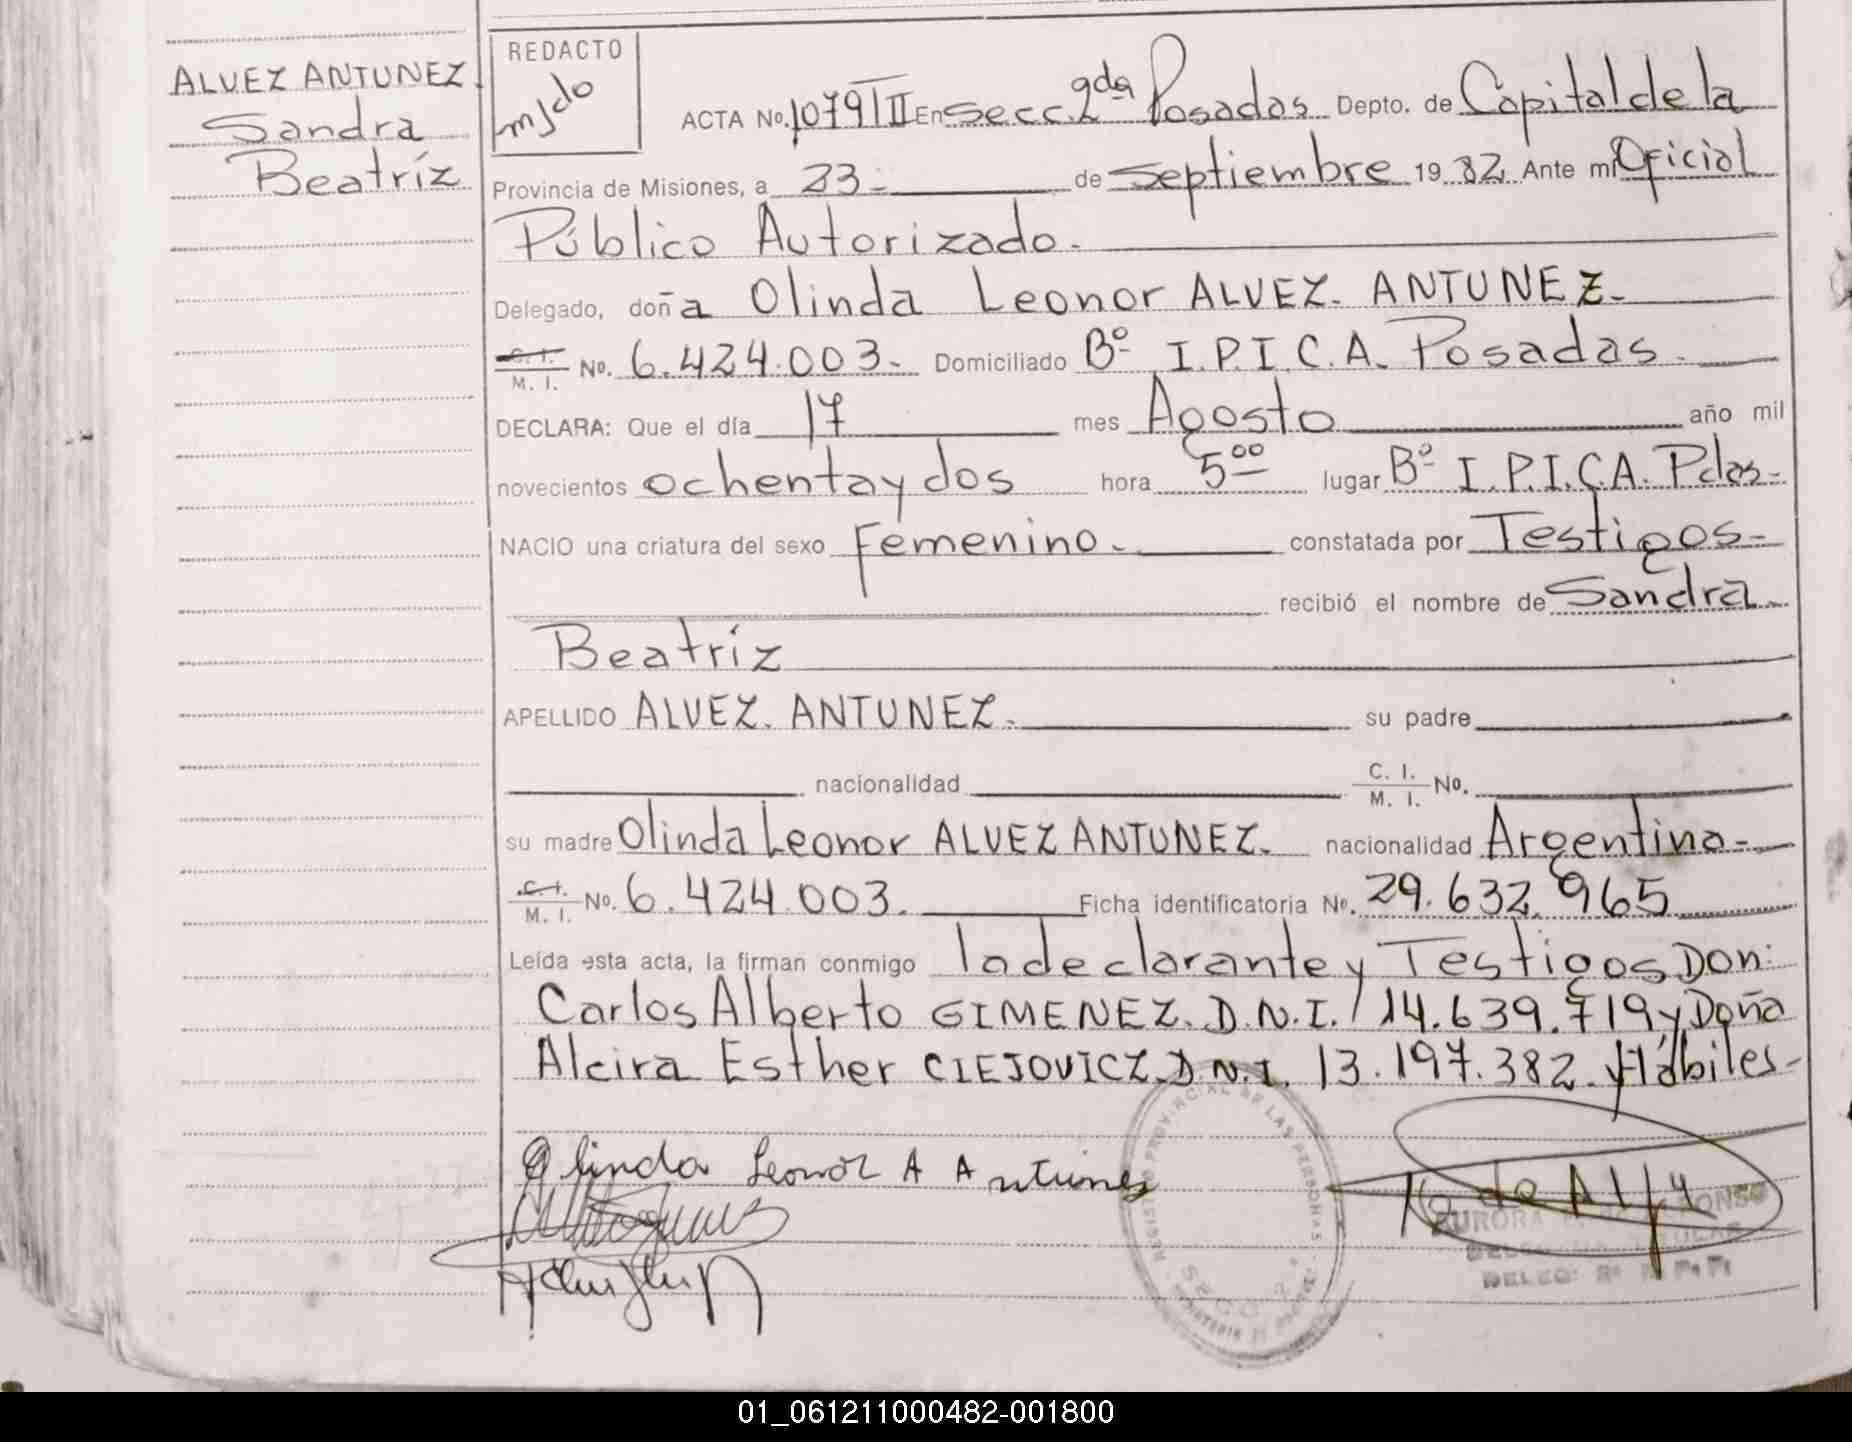 ALVEZ ANTUNEZ.
Sandra
Beatríz
REDACTO
mjdo
ACTA No. 1079 TII En Secc. 2da Posadas Depto. de Capital de la
Provincia de Misiones, a 23- de Septiembre 19 82 Ante mi Oficial
Público Autorizado.-
Delegado, doña Olinda Leonor ALVEZ. ANTUNEZ.-
C. I. / M. I. No. 6.424.003.- Domiciliado Bº I.P.I.C.A. Posadas.-
DECLARA: Que el día 17 mes Agosto año mil
novecientos ochenta y dos hora 5 00 lugar Bº I.P.I.C.A. Pdas-
NACIO una criatura del sexo Femenino.- constatada por Testigos-
recibió el nombre de Sandra
Beatríz
APELLIDO ALVEZ. ANTUNEZ.- su padre
nacionalidad C. I. / M. I. No.
su madre Olinda Leonor ALVEZ ANTUNEZ.- nacionalidad Argentina-
C. I. / M. I. No. 6.424.003. Ficha identificatoria No. 29.632.965
Leída esta acta, la firman conmigo la declarante y Testigos Don:
Carlos Alberto GIMENEZ. D.N.I. 14.639.719 y Doña
Alcira Esther CIEJOVICZ. D.N.I. 13.197.382. y Hábiles-
Olinda Leonor A Antunez
REGISTRO PROVINCIAL DE LAS PERSONAS
SECC. 2
AURORA
01_061211000482-001800